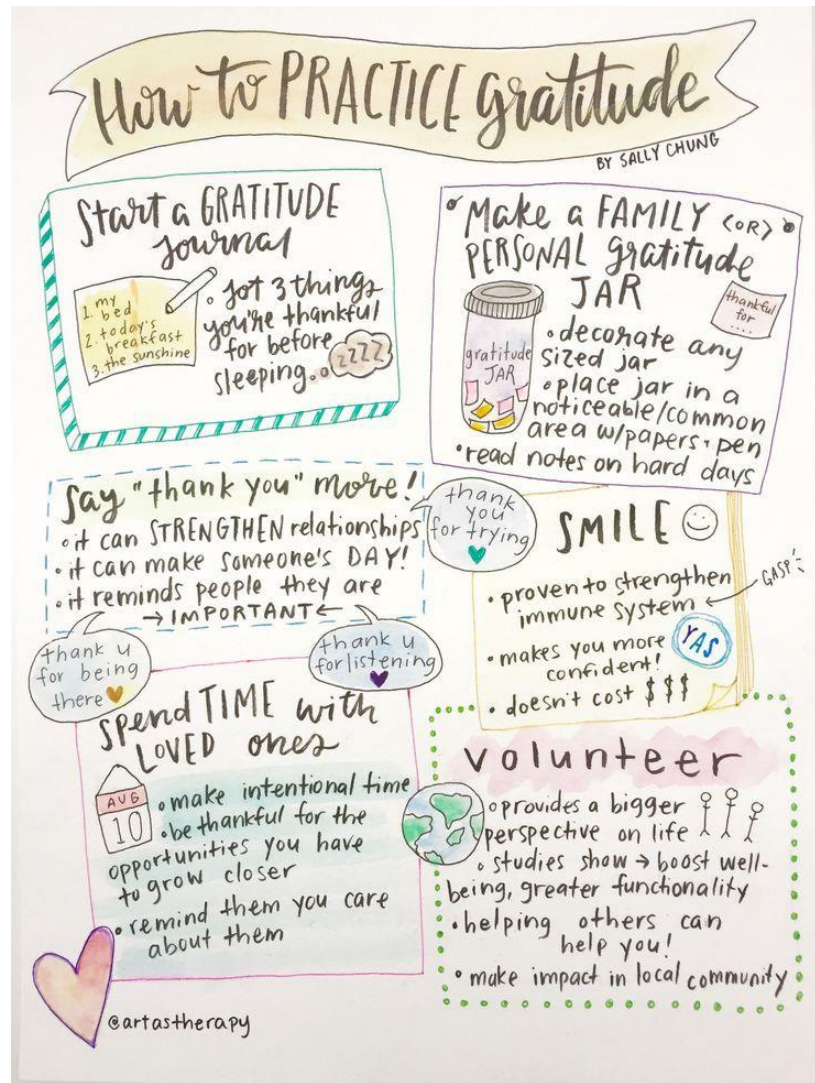 How to PRACTICE gratitude
BY SALLY CHUNG
Start a GRATITUDE
journal
1. my
bed
2. today's
breakfast
3. the sunshine
• Jot 3 things
you're thankful
for before
sleeping.
zzzz
• Make a FAMILY <OR> •
PERSONAL gratitude
JAR
thankful
for
....
gratitude
JAR
• decorate any
sized jar
• place jar in a
noticeable/common
area w/papers + pen
• read notes on hard days
Say "thank you" more!
• it can STRENGTHEN relationships
• it can make someone's DAY!
• it reminds people they are
→ IMPORTANT ←
thank
you
for trying
thank u
for being
there
thank u
for listening
SMILE
• proven to strengthen
immune system
GASP!
• makes you more
confident!
YAS
• doesn't cost $$$
Spend TIME with
LOVED ones
AUG
10
• make intentional time
• be thankful for the
opportunities you have
to grow closer
• remind them you care
about them
volunteer
• provides a bigger
perspective on life
• studies show → boost well-
being, greater functionality
• helping others can
help you!
• make impact in local community
@artastherapy